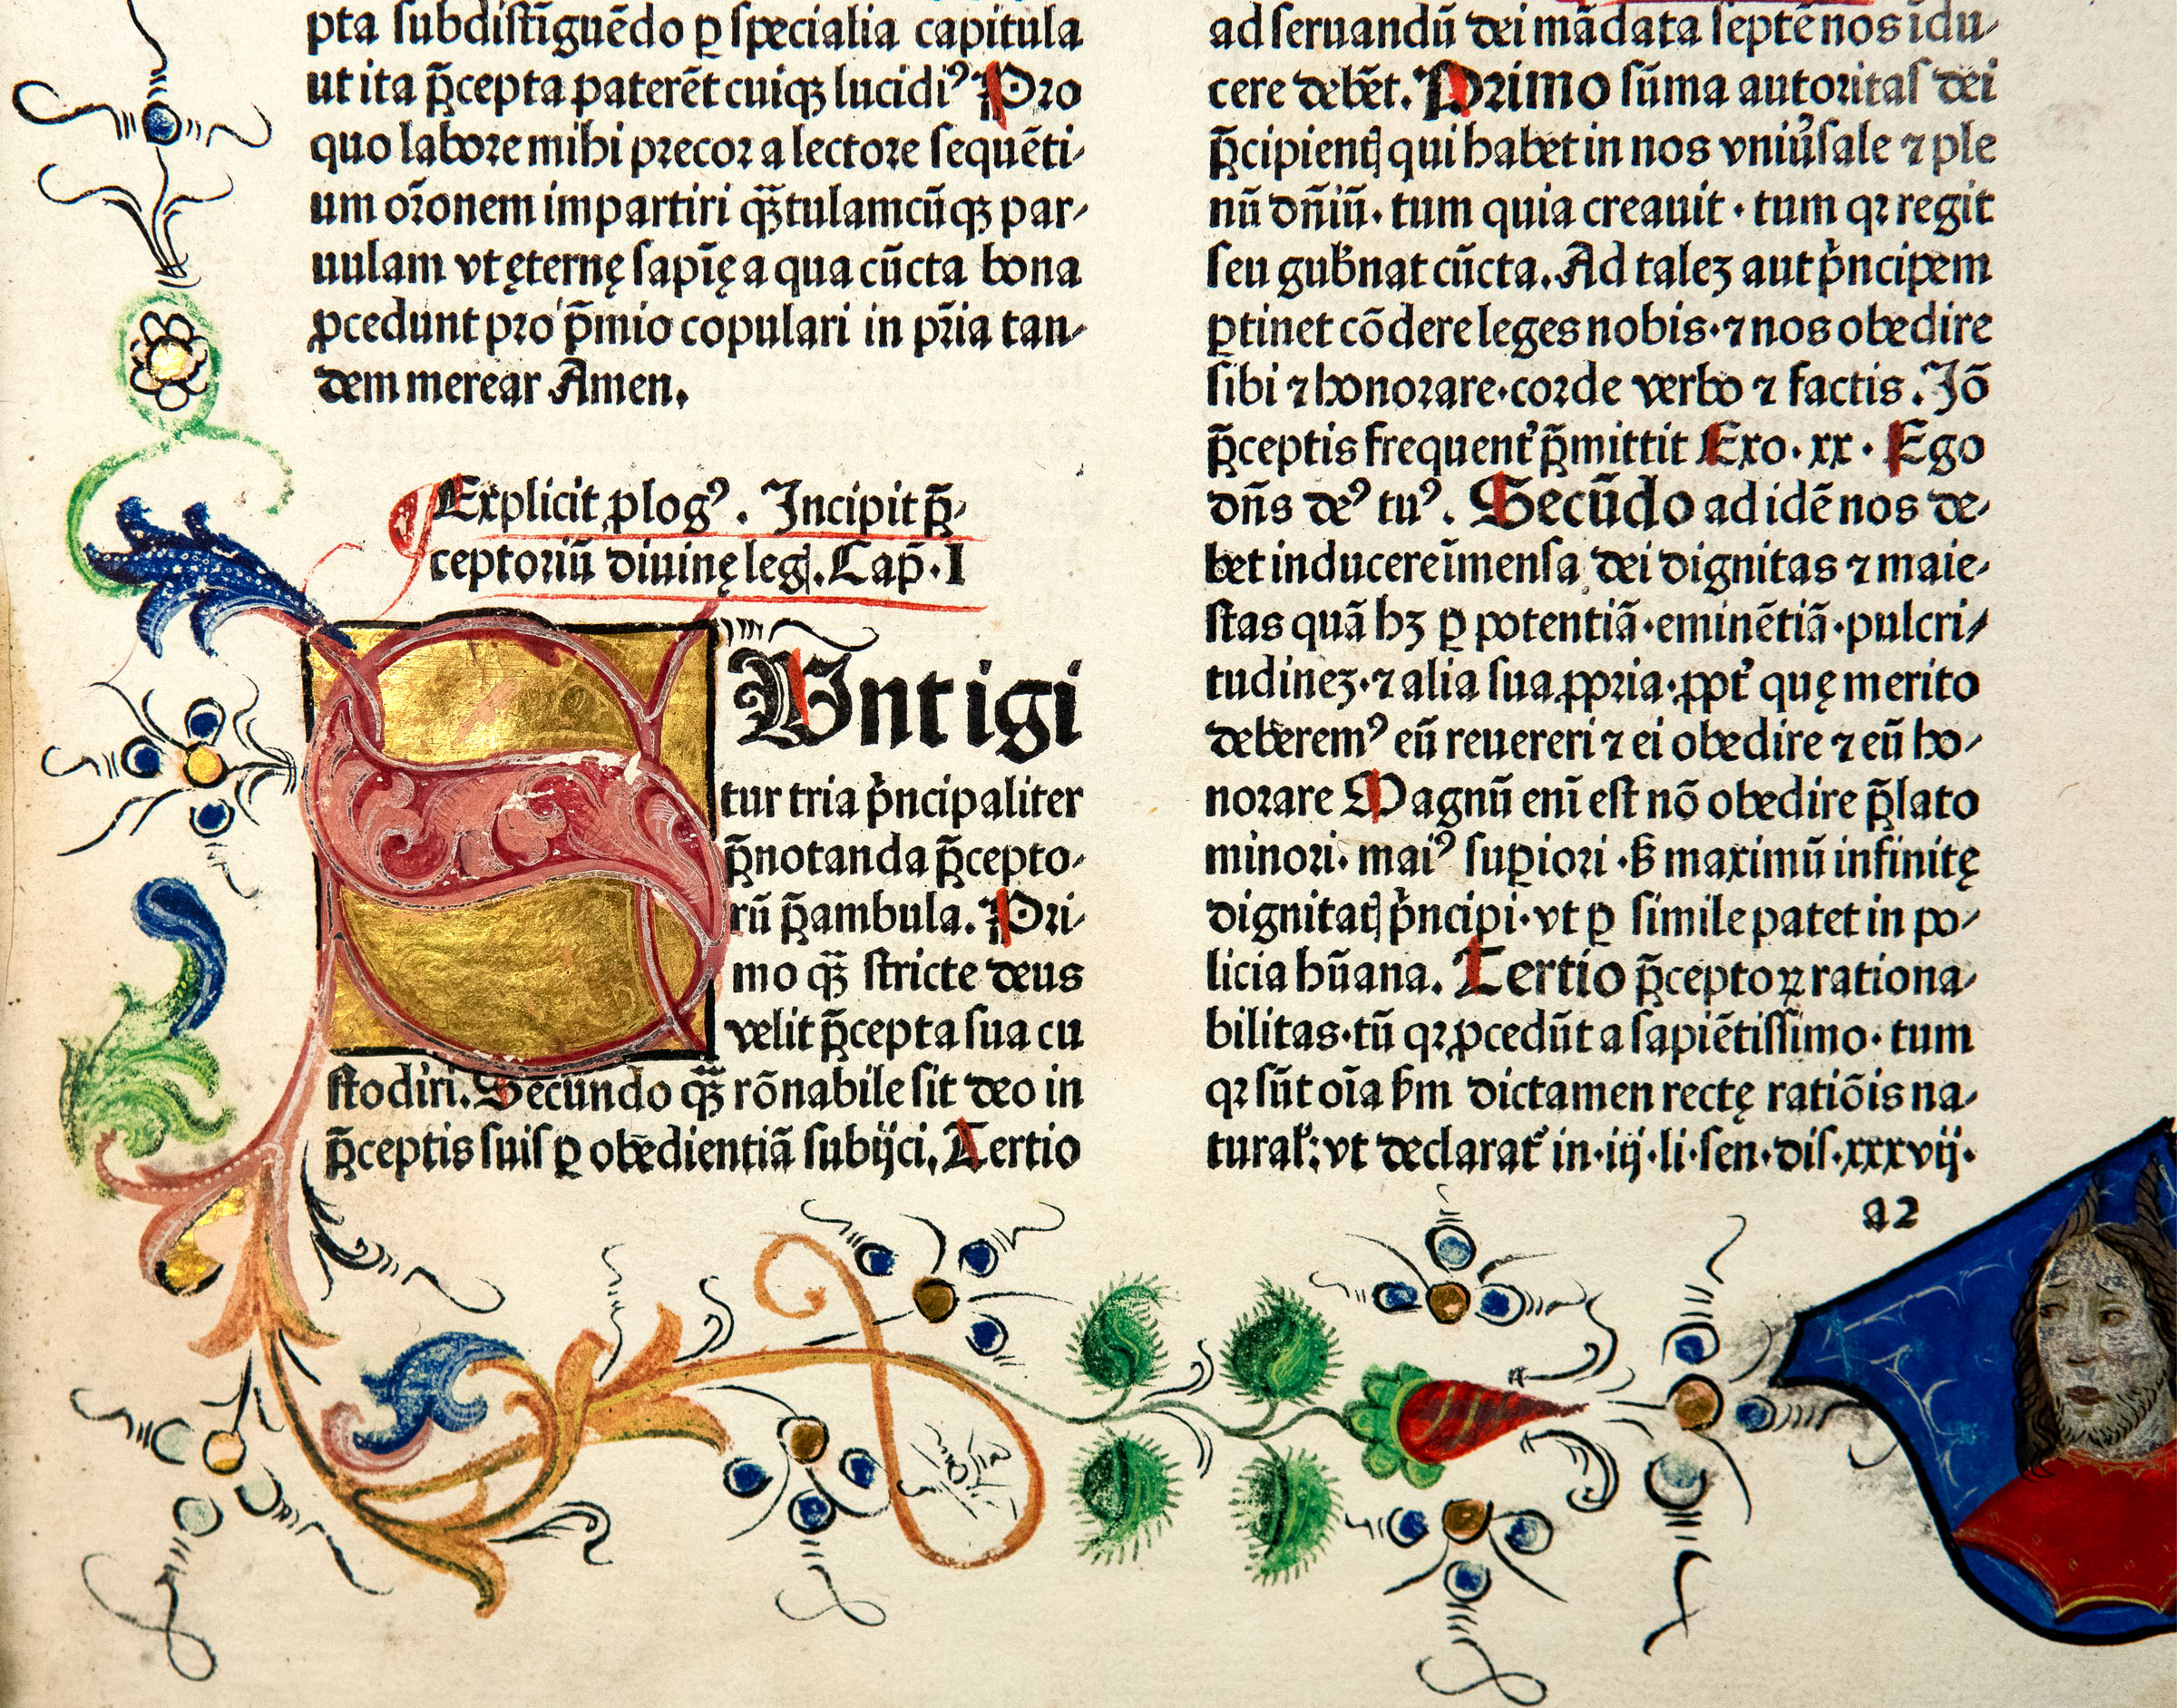 pta ſubdiſtīguēdo ꝑ ſpecialia capitula
ut ita p̄cepta paterēt cuiqꝫ lucidiꝰ Pro
quo labore mihi precor a lectore ſequēti-
um or̄onem impartiri qꝫ̄tulamcūqꝫ par-
uulam vt ęternę ſapīę a qua cūcta bona
ꝓcedunt pro p̄mio copulari in pr̄ia tan-
dem merear Amen.
Explicit ꝓlogꝰ. Incipit p̄-
ceptoriū diuinę legꝭ. Cap̄. I
SVnt igi
tur tria pͥncipaliter
p̄notanda p̄cepto-
rū p̄ambula. Pri-
mo qꝫ̄ ſtricte deus
velit p̄cepta ſua cu
ſtodiri. Secundo qꝫ̄ rōnabile ſit deo in
p̄ceptis ſuiſ ꝑ obedientiā ſubijci. Tertio
ad ſeruandū dei mādata ſeptē nos īdu-
cere debēt. Primo ſūma autoritaſ dei
p̄cipientꝭ qui habet in nos vniu̓ſale ⁊ ple
nū dn̄iū. tum quia creauit. tum qꝛ regit
ſeu gub̓nat cūcta. Ad taleꝫ aut pͥncipem
ꝑtinet cōdere leges nobis. ⁊ nos obedire
ſibi ⁊ honorare. corde verbo ⁊ factis. Iō
p̄ceptis frequent̓ p̄mittit Exo. xx. Ego
dn̄s deꝰ tuꝰ. Secūdo ad idē nos de-
bet inducere īmenſa dei dignitas ⁊ maie-
ſtas quā hꝫ ꝑ potentiā. eminētiā. pulcri-
tudineꝫ. ⁊ alia ſua ꝓpria. ꝓpt̓ quę merito
deberemꝰ eū reuereri ⁊ ei obedire ⁊ eū ho-
norare Magnū enī eſt nō obedire p̄lato
minori. maiꝰ ſuꝑiori. ẜ maximū infinitę
dignitatꝭ pͥncipi. vt ꝑ ſimile patet in po-
licia hūana. Tertio p̄ceptoꝝ rationa-
bilitas. tū qꝛ ꝓcedūt a ſapiētiſſimo. tum
qꝛ ſūt oīa ẜm dictamen rectę ratiōis na-
tural̓: vt declarat̓ in. iij. li. ſen. diſ. xxxvij.
a2